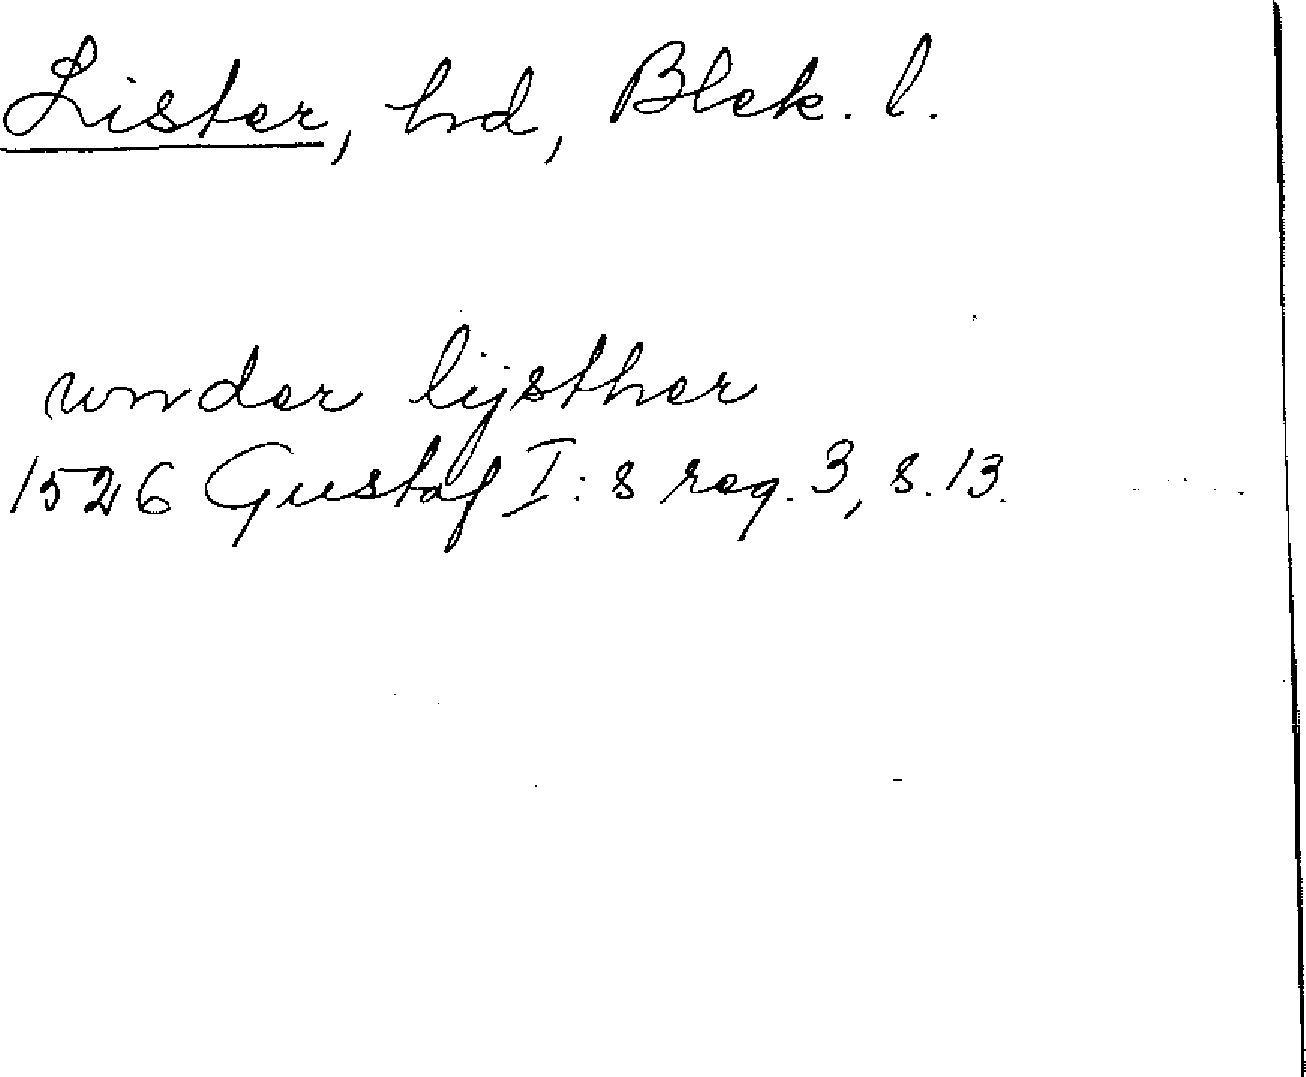 Lister, hd, Blek. l.
wnder lijsther
1526 Gustaf I:s reg. 3, s. 13.